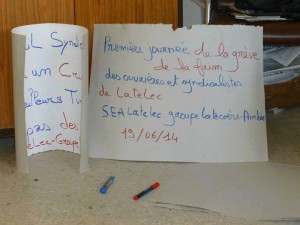 UL Syndic
un Cr
pas des
Première journée de la grève
de la faim
des ouvrières et syndicalistes
de LateLec
SEA LateLec groupe Latecoere-Airbus
19/06/14